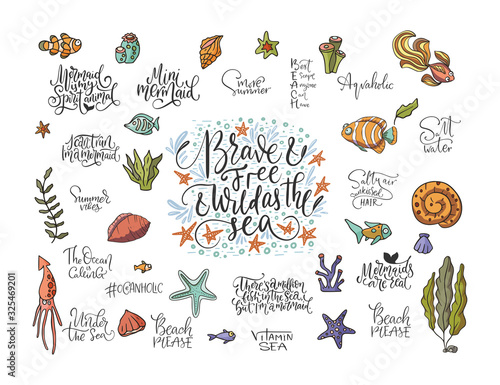 Mermaid
is my
Spirit animal
Mini
mermaid
Smore
Summer
Best
Escape
Anyone
Can
Have
Aquaholic
Salt
water
I can't run
I'm a mermaid
Brave &
Free
Wild as the
sea
Salty air
sunkissed
HAIR
Summer
vibes
The Ocean
is Calling
#OCEANHOLIC
There's a million
fish in the sea
But I'm a mermaid
Mermaids
are real
Under
the Sea
Beach
PLEASE
VITAMIN
SEA
Beach
PLEASE
Adobe Stock | #325469201